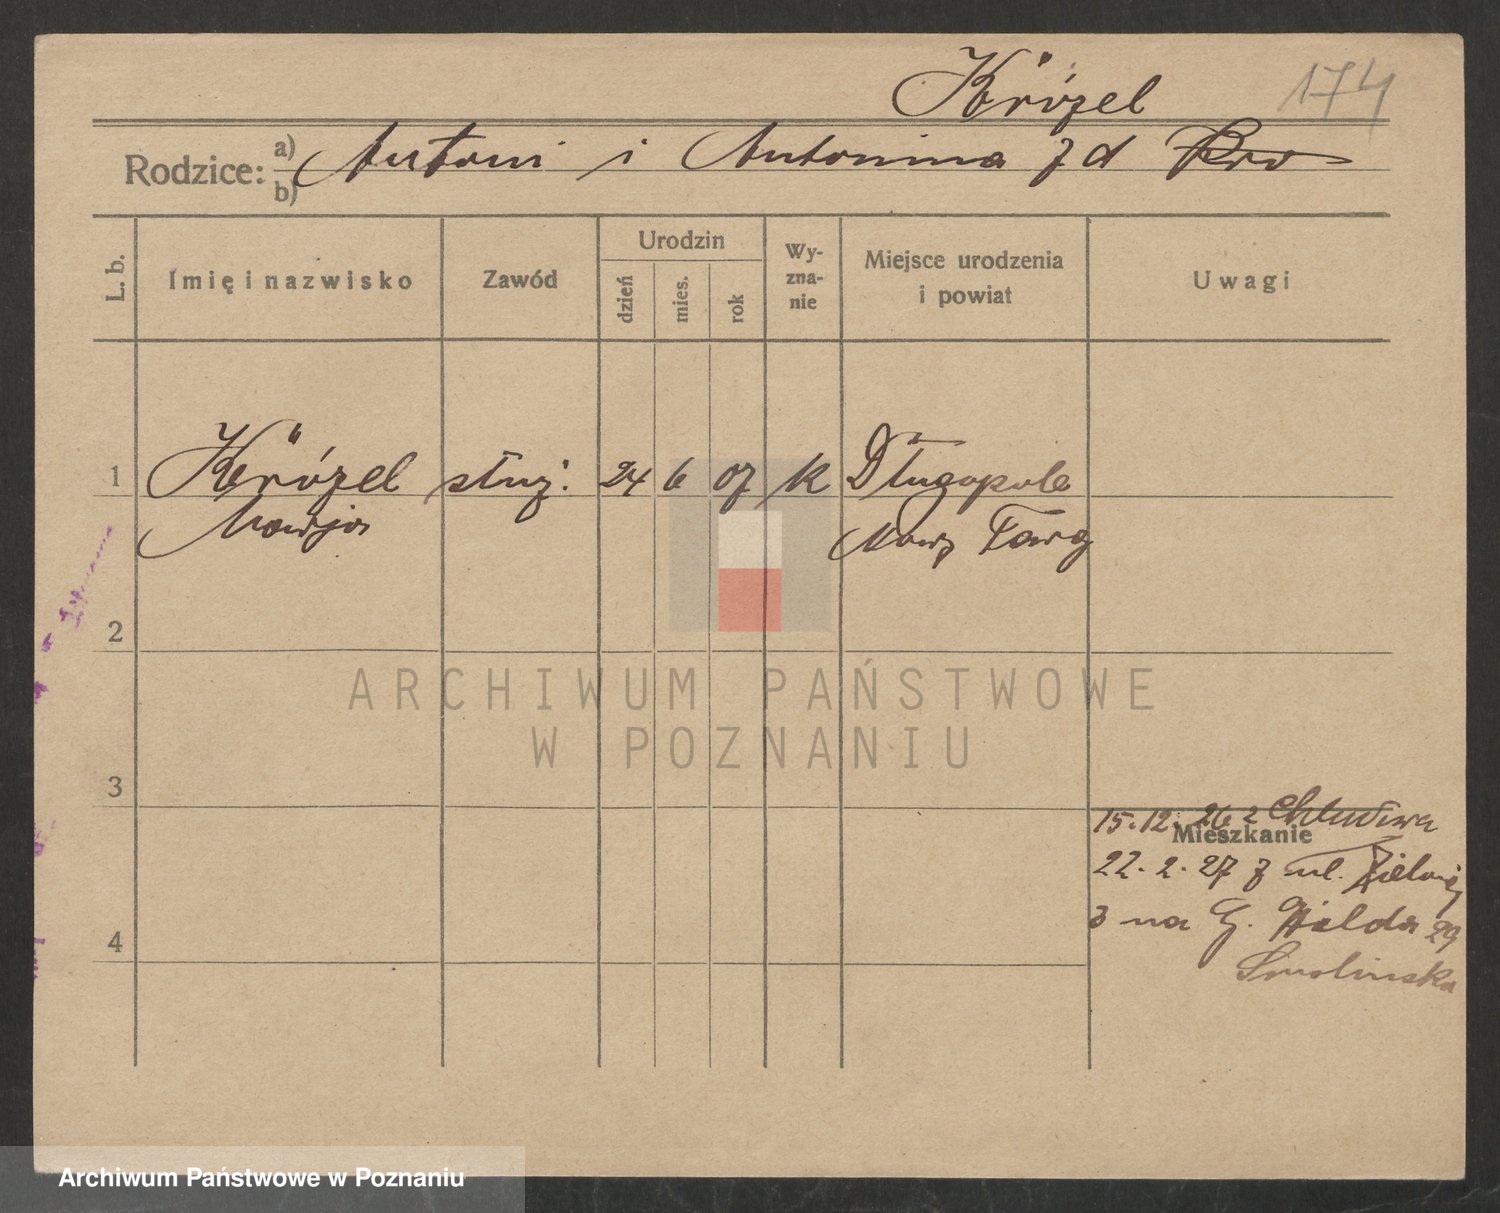 Körózel 174
Rodzice: a) Antoni i Antonina z d
b)
L. b. Imię i nazwisko Zawód Urodzin dzień mies. rok Wy-zna-nie Miejsce urodzenia i powiat Uwagi
1 Körózel służ. 24 6 07 k Długopole
Marja Nowy Targ
2
ARCHIWUM PAŃSTWOWE
W POZNANIU
3
15.12.26 z
Mieszkanie
22.2.27 z ul. Zielonej
3 na G. Wilda 29
4
Smolinska
Archiwum Państwowe w Poznaniu